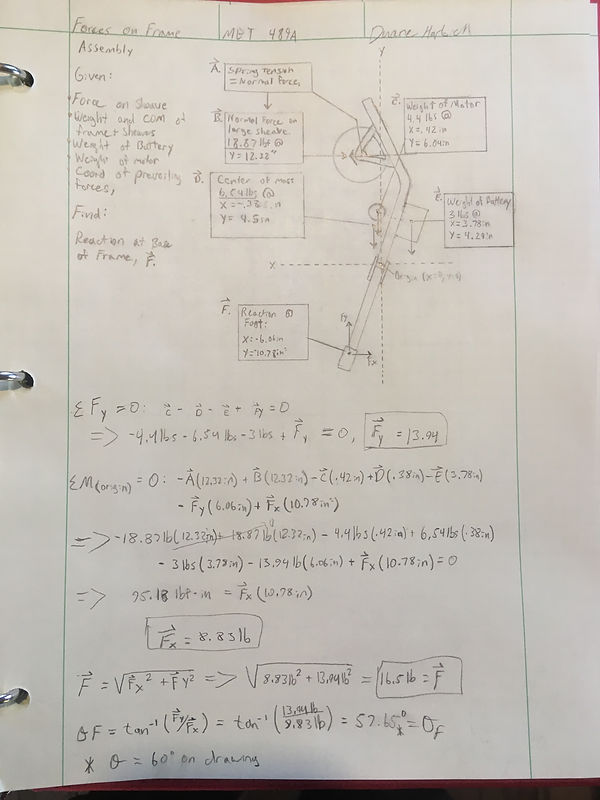 Forces on Frame | MET 489A | Duane
Assembly
Given:
Force on sheave
Weight and COM of
frame + sheaves
Weight of Battery
Weight of motor
Coord of prevailing
forces,
Find:
Reaction at Base
of Frame, F.
A. Spring Tension
= Normal Force,
B. Normal Force on
large sheave.
18.87 lbf @
Y = 12.32"
D. Center of mass
6.54 lbs @
X = -.38 in
Y = 4.5 in
C. Weight of Motor
4.4 lbs @
X = .42 in
Y = 6.04 in
E. Weight of Battery
3 lbs @
X = 3.78in
Y = 4.29in
Y
X
Origin (X=0, Y=0)
F. Reaction @
Foot:
X = -6.06in
Y = -10.78in
Fy
Fx
ΣFy = 0: C - D - E + Fy = 0
=> -4.4 lbs - 6.54 lbs - 3 lbs + Fy = 0, Fy = 13.94
ΣM(origin) = 0: -A(12.32in) + B(12.32in) - C(.42in) + D(.38in) - E(3.78in)
- Fy(6.06in) + Fx(10.78in)
=> -18.87lb(12.32in) + 18.87lb(12.32in) - 4.4lbs(.42in) + 6.54lbs(.38in) 0
- 3lbs(3.78in) - 13.94lb(6.06in) + Fx(10.78in) = 0
=> 95.18 lbf·in = Fx(10.78in)
Fx = 8.83 lb
F = √Fx² + Fy² => √8.83lb² + 13.94lb² = 16.5 lb = F
θF = tan⁻¹(Fy/Fx) = tan⁻¹(13.94lb/8.83lb) = 57.65°* = θf
* θ = 60° on drawing